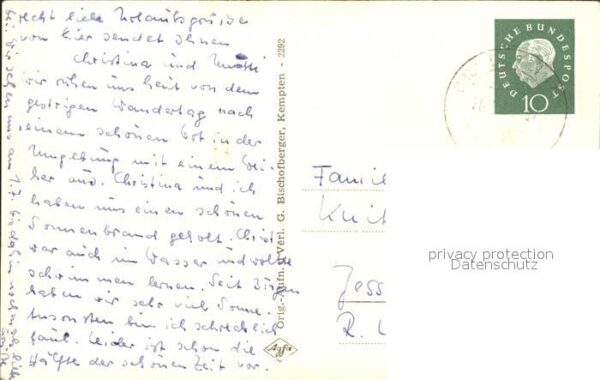 recht liebe Urlaubsgrüsse
von hier sendet Ihnen
Christina und Mutti
Wir ruhen uns heut von dem
gestrigen Wandertag nach
einem schönen Ort in der
Umgebung mit einem Wei-
her aus. Christina und ich
haben uns einen schönen
Sonnenbrand geholt. Christ.
war auch im Wasser und wollte
schwimmen lernen. Seit
haben wir sehr viel Sonne.
Ansonsten bin ich schrecklich
faul. Leider ist schon die
Hälfte der schönen Zeit vor.
wir sehen uns am 1.7.
Orig.-Aufn. u. Verl. G. Bischofberger, Kempten - 2292
Agfa
DEUTSCHE BUNDESPOST
10
Famil
Knit
Jess
R.
privacy protection
Datenschutz